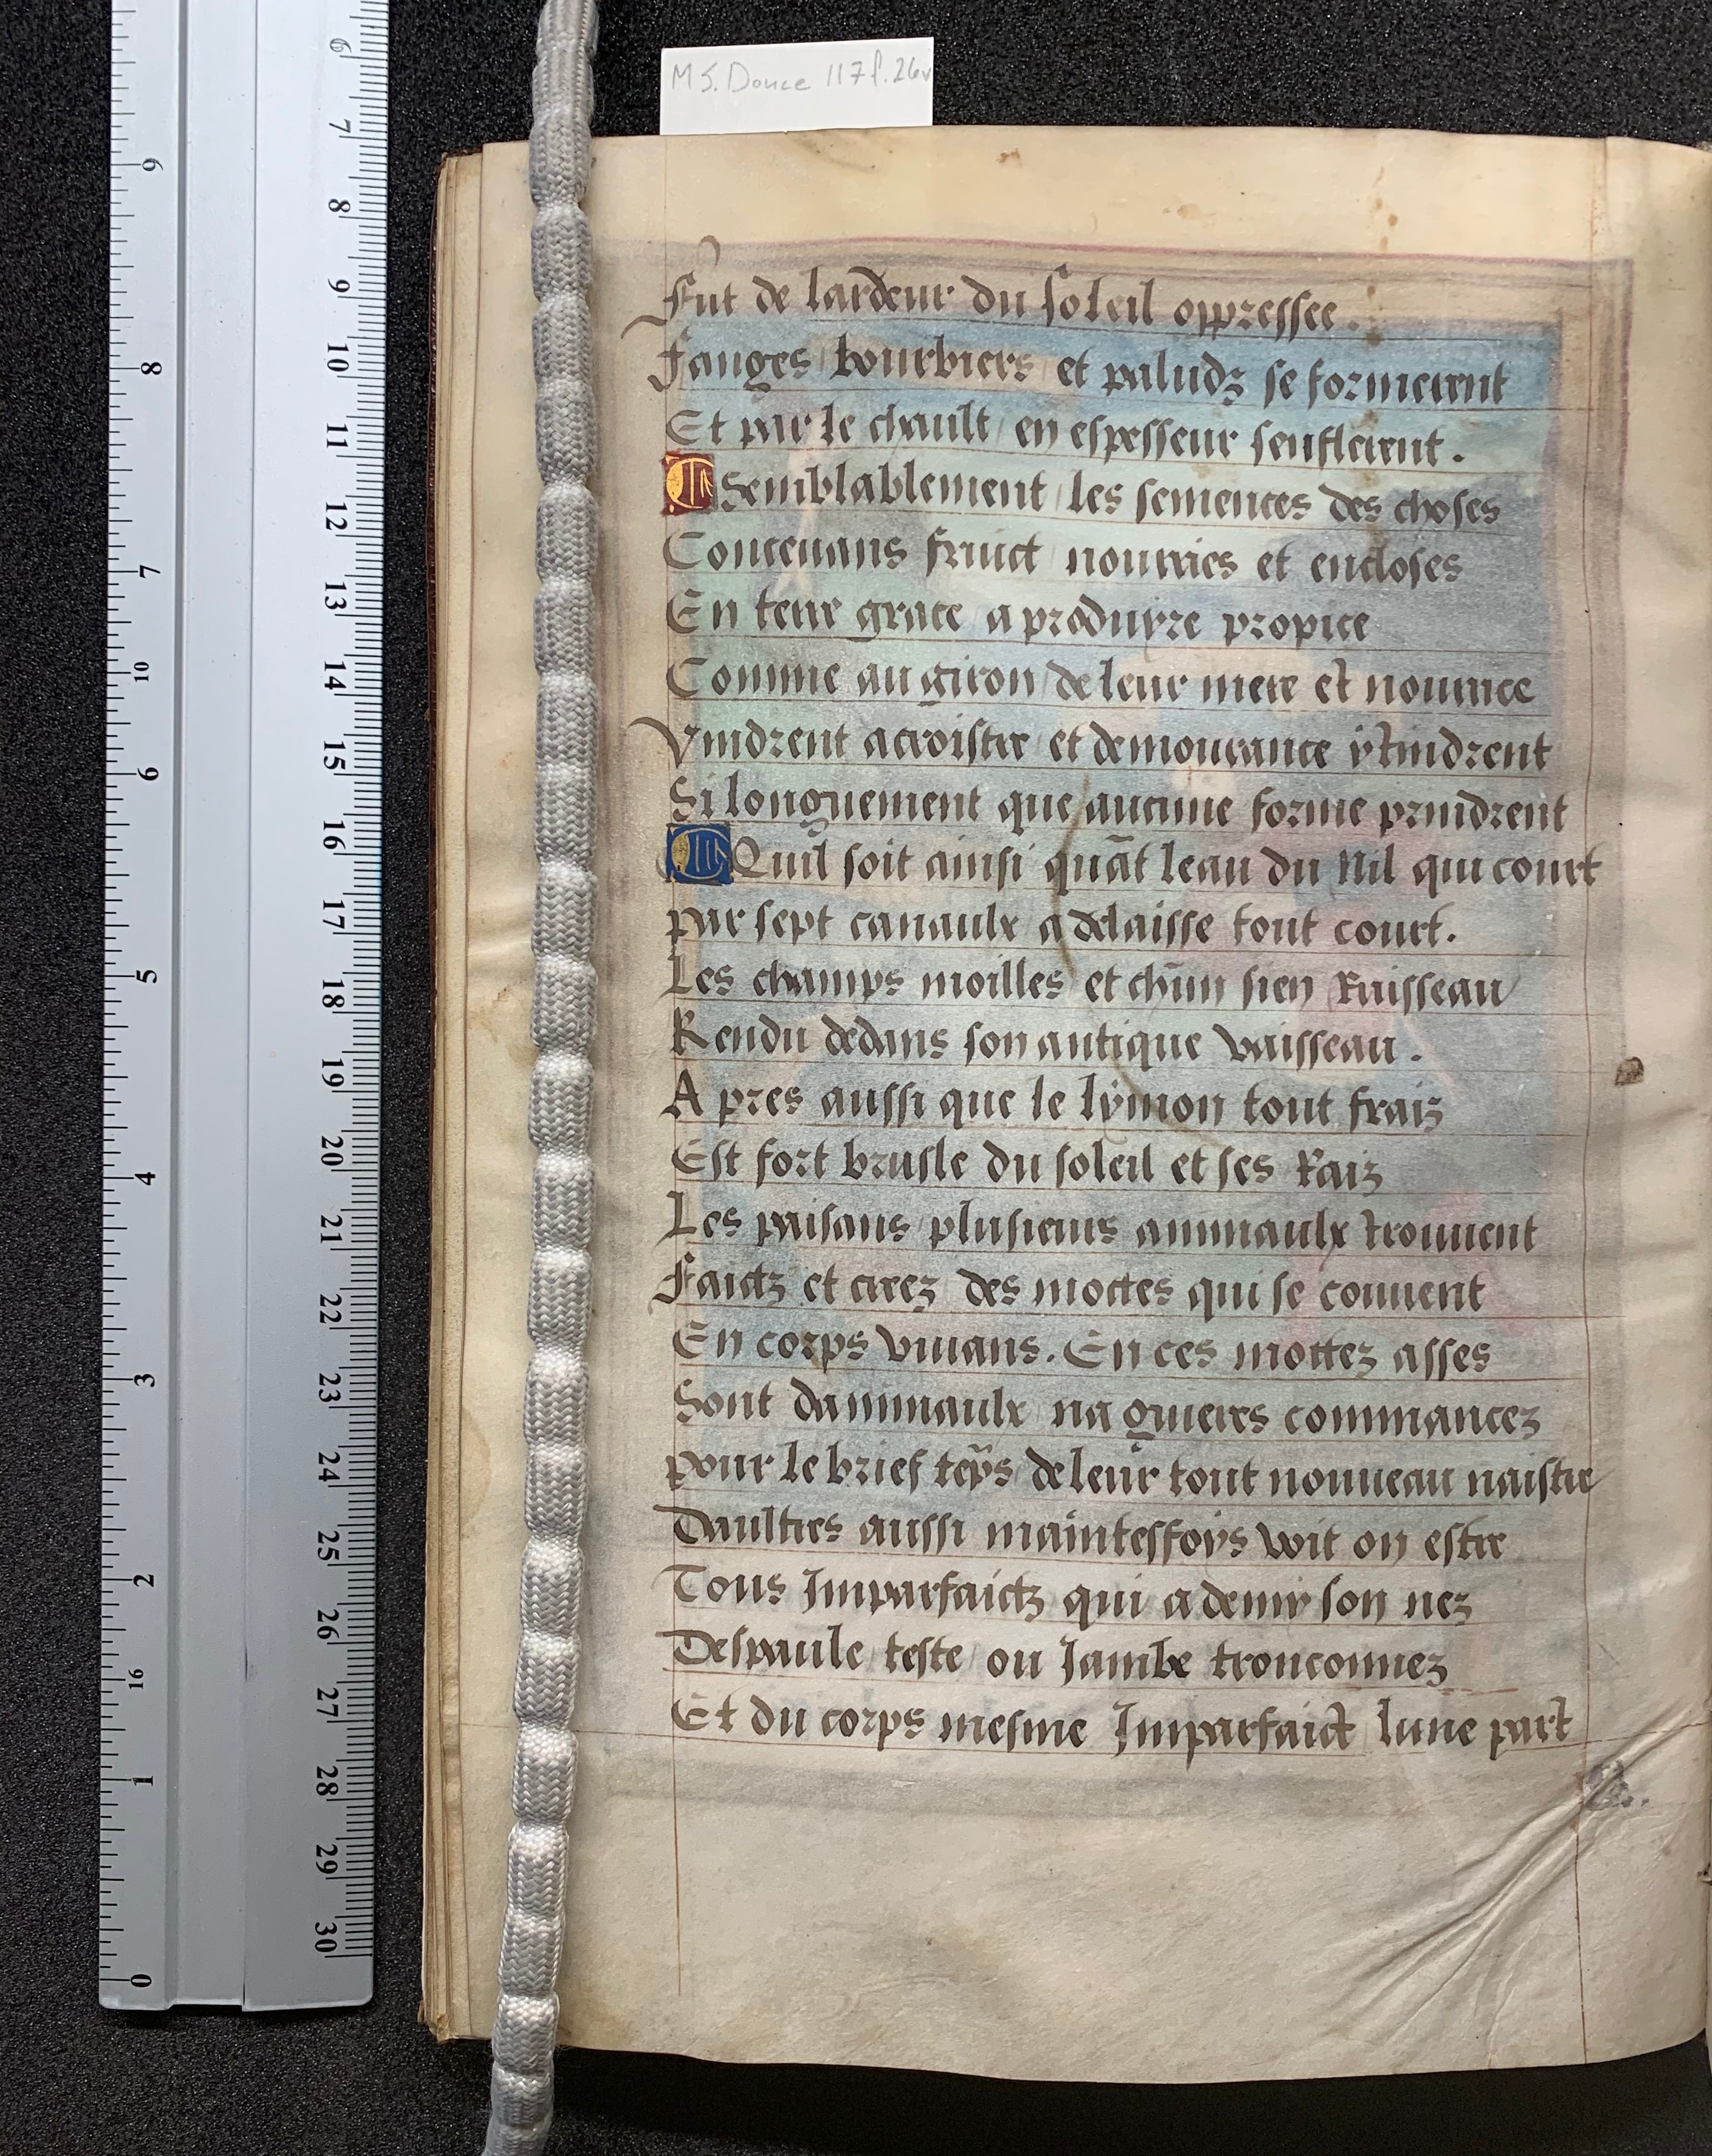 MS. Douce 117 f. 26v
Fut de lardeur du soleil oppressee.
Fanges / bourbiers et paludz se formerent
Et par le chault / en espesseur senflerent.
Semblablement / les semences des choses
Contenans fruict nourries et encloses
En terre grace a produyre propice
Comme au giron / de leur mere et nourrice
Vindrent acroistre et demourance y tindrent
Si longuement que aucune forme prindrent
Quil soit ainsi quāt leau du Nil qui court
par sept canaulx a delaisse tout court.
Les champs moilles et chūn sien Ruisseau
Rendu dedans son antique vaisseau.
Apres aussi que le lymon tout fraiz
Est fort brusle du soleil et ses Raiz
Les paisans plusieurs animaulx trouuent
Faictz et creez des mottes qui se couuent
En corps viuans. En ces mottez asses
Sont danimaulx na guieres commancez
pour le brief tēps de leur tout nouueau naistre
Daultres aussi maintesfoys voit on estre
Tous Imparfaictz qui a demy son nez
Despaule / teste / ou Jambe tronconnez
Et du corps mesme Imparfaict lune part
6 7 8 9 10 11 12 13 14 15 16 17 18 19 20 21 22 23 24 25 26 27 28 29 30
9 8 7 10 6 5 4 3 2 16 1 0